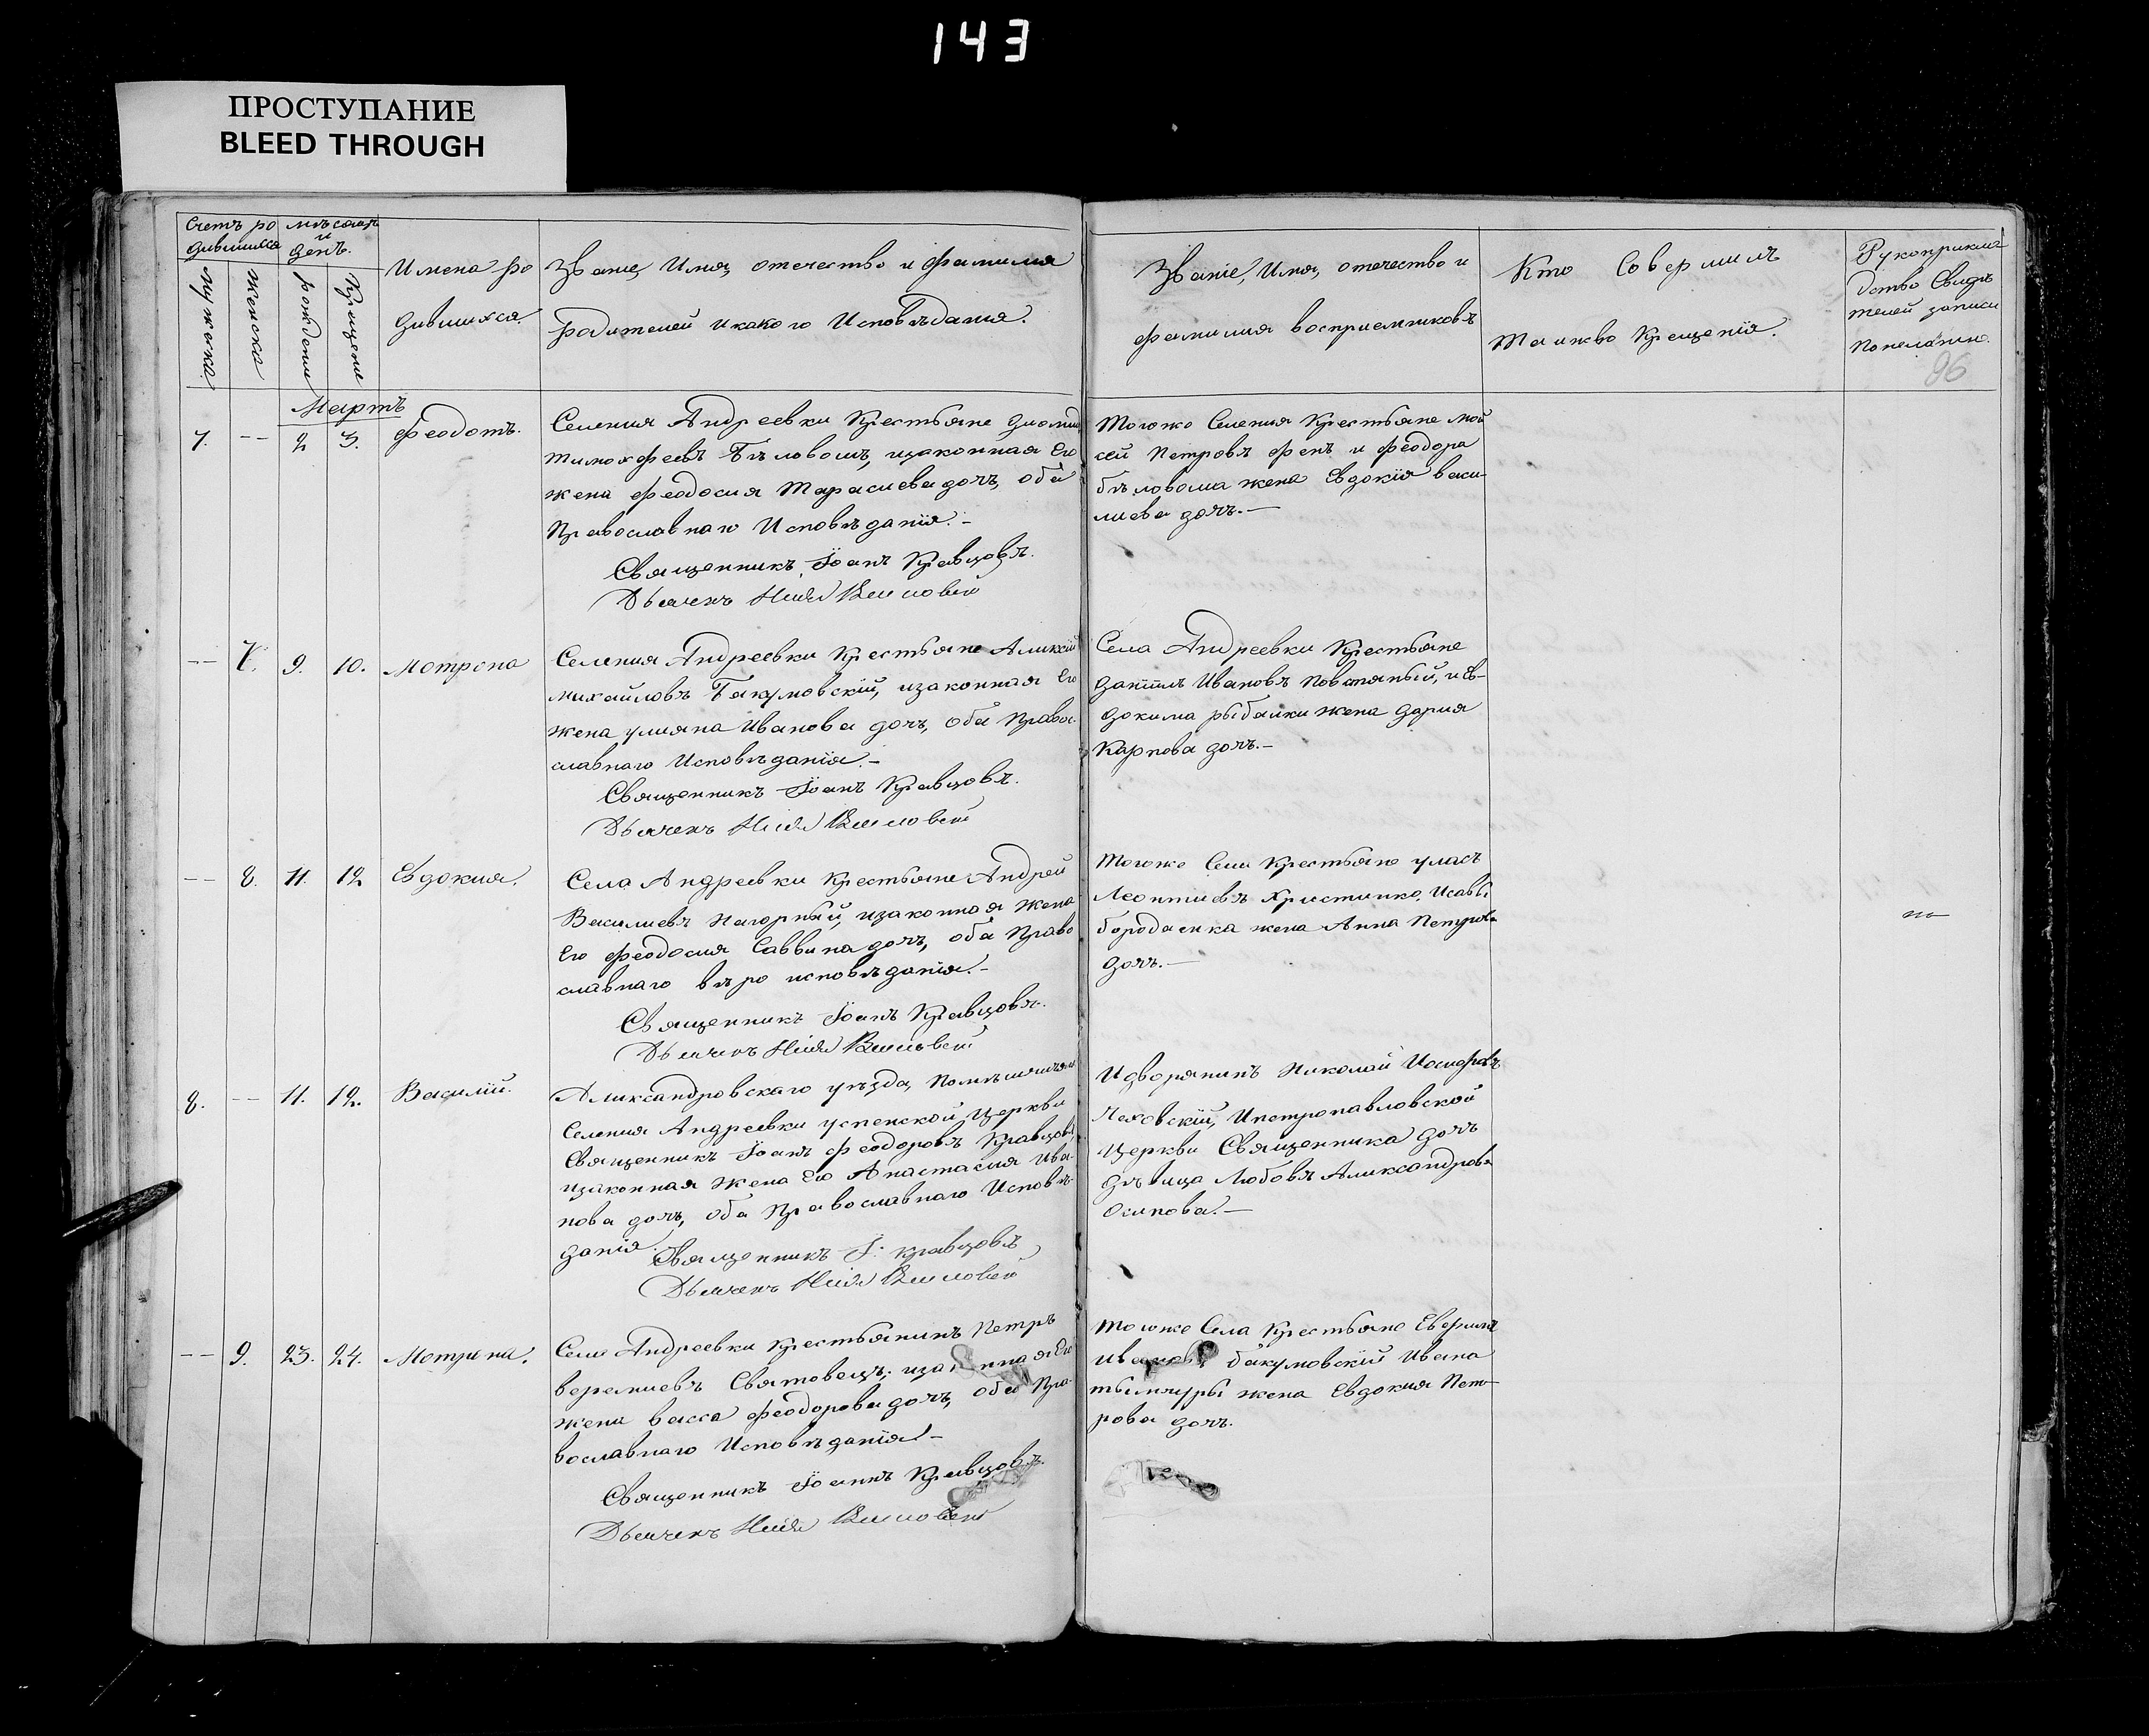 143
ПРОСТУПАНИЕ
BLEED THROUGH
Счетъ ро
дившихся
мѣсяцъ
и
день.
мужеска
женска
рожденія
Крещенія
Имена ро
дившихся.
Званіе, Имя, отечество и фамилія
родителей и какого Исповѣданія.
Званіе, Имя, отечество и
фамилия восприемниковъ
Кто Совершилъ
таинство Крещенія.
Рукоприкла
дство Свидѣ
телей записи
по желанію.
96
Мартъ
7. -- 2 3. Феодотъ.
Селения Андреевки Крестьяне Диомид
тимофеевъ Бѣловолъ, изаконная Его
жена феодосия Тарасиева дочь, оба
Православнаго Исповѣданія.-
Священникъ Іоанъ Кравцовъ.
Дьячекъ
Тогоже Селения Крестьяне мой
сей Петровъ и феодора
бѣловола жена Евдокія васи-
лиева дочь.-
-- 7. 9. 10. Мотрона
Селения Андреевки Крестьяне Аликсій
михайловъ Бакумовскій, изаконная Его
жена улияна Иванова дочь, оба Право-
славнаго Исповѣданія.-
Священникъ Іоанъ Кравцовъ.
Дьячекъ
Села Андреевки Крестьяне
даніилъ Ивановъ Повстяный, и Ев-
докима рыбалки жена дария
Карпова дочь.-
-- 8. 11. 12 Евдокия.
Села Андреевки Крестьяне Андрей
Василиевъ Нагорный, изаконная жена
Его феодосия Саввина дочь, оба Право
славнаго вѣро исповѣданія.-
Священникъ Іоанъ Кравцовъ.
Дьячекъ
Тогоже Села Крестьяне уласъ
Леонтиевъ Христипко, Исавы
бородаенка жена Анна Петрова
дочь.-
8. -- 11. 12. Василій.
Александровскаго уѣзда, Помѣщичяго
Селения Андреевки успенской Церкви
Священникъ Іоанъ феодоровъ Кравцовъ,
изаконная жена Его Анастасия Ива-
нова дочь, оба Православнаго Исповѣ-
данія.
Священникъ І: Кравцовъ
Дьячекъ
Идворянинъ Николай Иосифовъ
Чеховскій, Ипетропавловской
Церкви Священника дочь
дѣвица Любовь Александрова
Осипова.-
-- 9. 23. 24. Мотрона.
Села Андреевки Крестьянинъ Петръ
веремиевъ Святовецъ, изаконная Его
жена васса феодорова дочь, оба Пра-
вославнаго Исповѣданія.-
Священникъ Іоаннъ Кравцовъ.
Дьячекъ
Тогоже Села Крестьяне
Ивановъ бакумовскій Ивана
жена Евдокия Пет-
рова дочь.